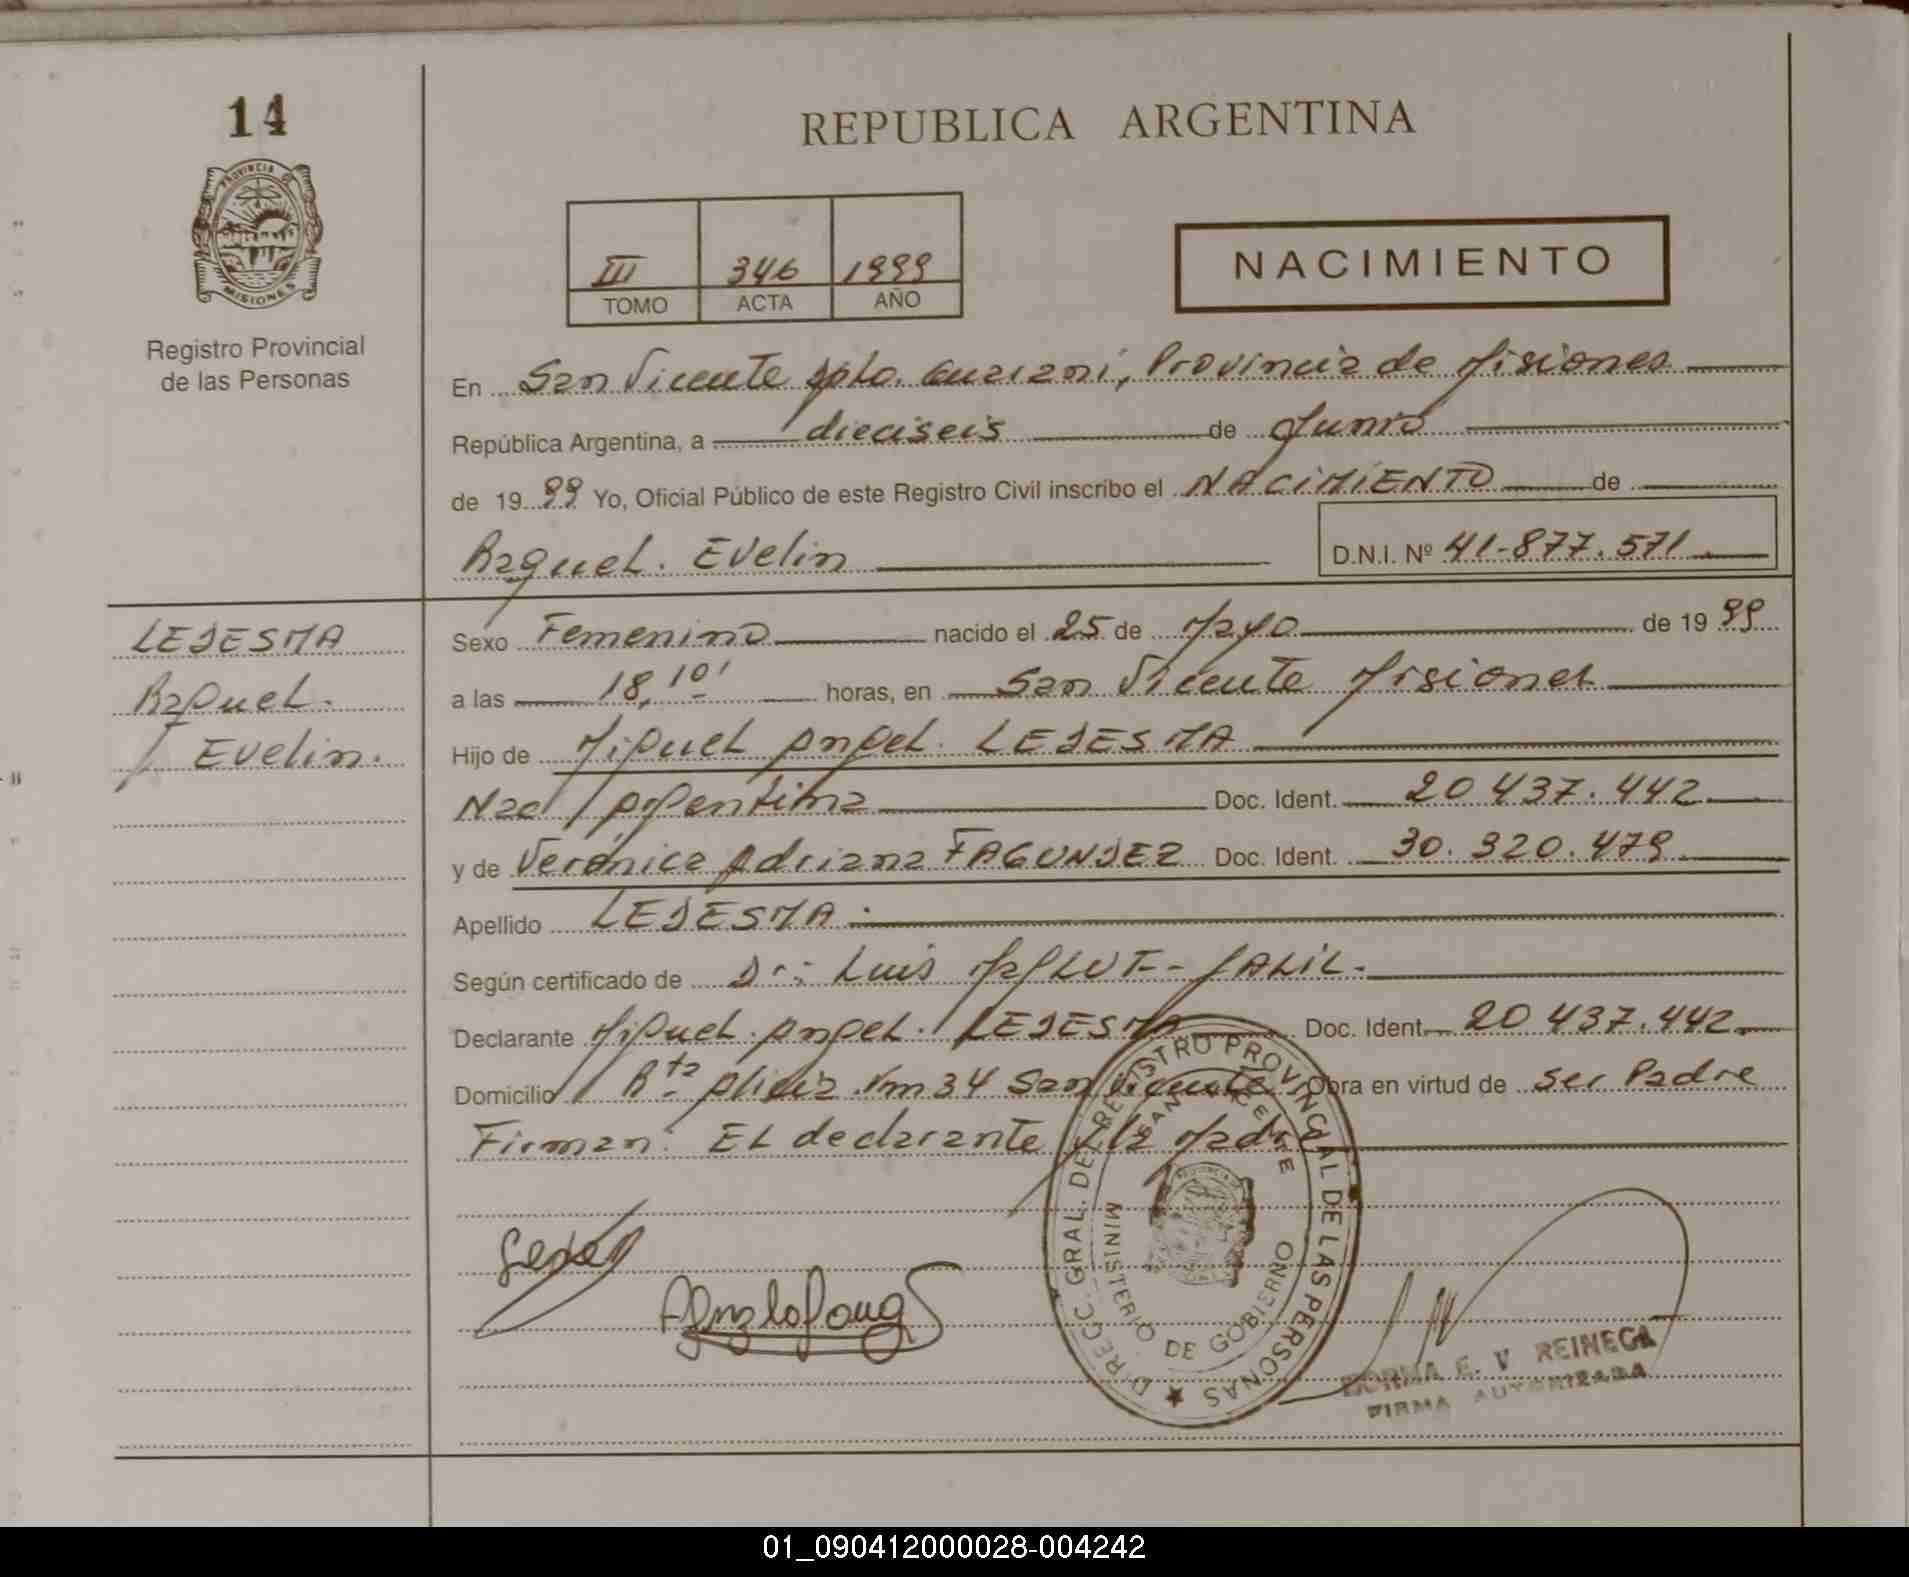 14
REPUBLICA ARGENTINA
PROVINCIA DE MISIONES
III 346 1999
TOMO ACTA AÑO
NACIMIENTO
Registro Provincial
de las Personas
En San Vicente Dpto. Guarani, Provincia de Misiones
República Argentina, a dieciseis de Junio
de 1999 Yo, Oficial Público de este Registro Civil inscribo el NACIMIENTO de
Raquel. Evelin D.N.I. Nº 41-877.571
LEDESMA
Raquel.
Evelin.
Sexo Femenino nacido el 25 de Mayo de 1999
a las 18,10' horas, en San Vicente Misiones
Hijo de Miguel Angel. LEDESMA
Nac/ Argentina Doc. Ident. 20 437.442
y de Verónica Adriana FAGUNDEZ Doc. Ident. 30.320.479
Apellido LEDESMA.
Según certificado de Dr: Luis JALIL.
Declarante Miguel. Angel. LEDESMA Doc. Ident. 20 437.442
Domicilio Rta Alicia Km 34 San Vicente Obra en virtud de ser Padre
Firman: EL declarante y la Madre
DIRECC. GRAL. DE REGISTRO PROVINCIAL DE LAS PERSONAS
SAN VICENTE
MINISTERIO DE GOBIERNO
E. V. REINEGA
FIRMA AUTORIZADA
01_090412000028-004242